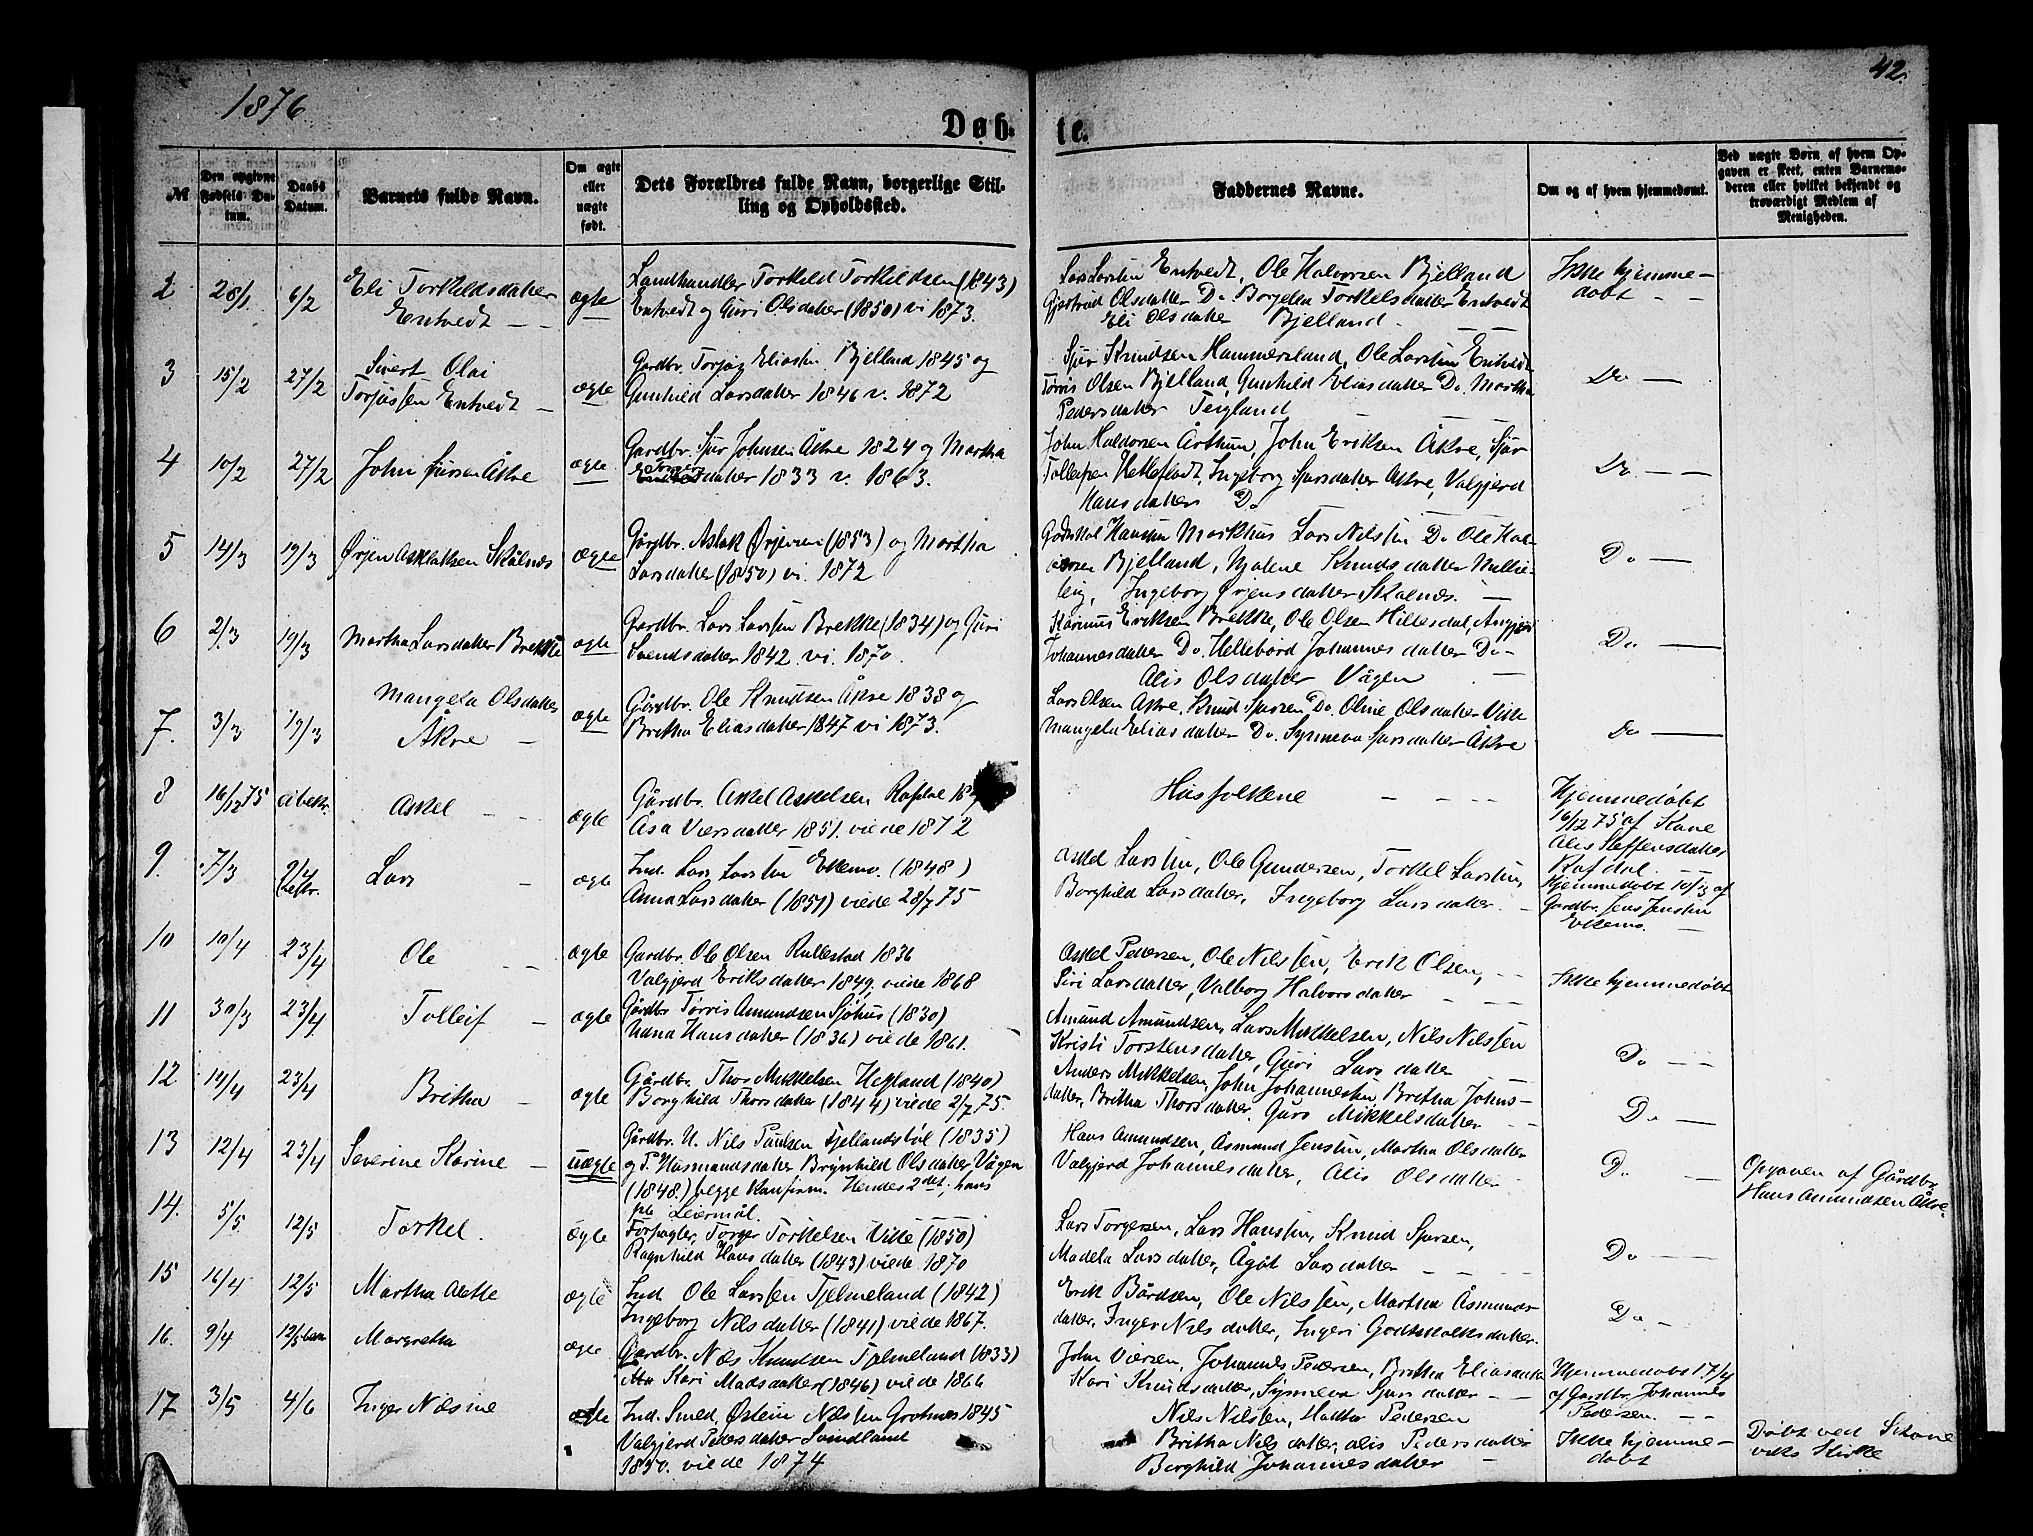 1876
42.
Døb-
te.
№
Den opgivne Fødsels Datum.
Daabs Datum.
Barnets fulde Navn.
Om ægte eller uægte født.
Dets Forældres fulde Navn, borgerlige Stilling og Opholdssted.
Faddernes Navne.
Om og af hvem hjemmedøbt.
Ved uægte Børn af hvem Opgaven er skeet, enten Barnemoderen eller hvilket bekjendt og troværdigt Medlem af Menigheden.
2 28/1 6/2 Eli Torkildsdatter
Entvedt
ægte
Landhandler Torkild Torkildsen (1843)
Entvedt og Guri Olsdatter (1850) vi 1873.
Lars Larssen Entvedt, Ole Halvorsen Bjelland
Gjertrud Olsdatter Do Borgela Torkelsdatter Entvedt
Eli Olsdatter Bjelland
Ikke hjemme-
døbt
3 15/2 27/2 Sivert Olai
Torjussen Entvedt
ægte
Gardbr. Torjus Eliassen Bjelland 1845 og
Gunhild Larsdatter 1846 v. 1872
Sjur Knudsen Hammersland, Ole Larssen Entvedt
Tørris Olsen Bjelland, Gunhild Eliasdatter Do. Martha
Pedersdatter Teigland
Do
4 10/2 27/2 John Sjursen Åkre
ægte
Gardbr. Sjur Johnsen Åkre 1824 og Martha
datter 1833 v. 1863.
John Haldorsen Årthun, John Eriksen Åkre, Sjur
Tollefsen Hetleflodt, Ingeborg Sjursdatter Åkre, Valgjerd
Hansdatter Do
Do
5 14/3 19/3 Ørjen Asklaksen Skålnes
ægte
Gårdbr. Aslak Ørjensen (1853) og Martha
Larsdatter (1850) vi. 1872
Godskal Hanssen Markhus Lars Nilssen Do Ole Hal-
vorsen Bjelland, Malene Knudsdatter Mellie-
teig, Ingeborg Ørjensdatter Skålnes.
Do
6 2/3 19/3 Martha Larsdatter Brekke
ægte
Gardbr. Lars Larssen Brekke (1834) og Guri
Svendsdatter 1842. vi. 1870.
Eriksen Brekke, Ole Olsen Hillesdal, Angjerd
Johannesdatter Do. Hellebord Johannesdatter Do-
Alis Olsdatter Vågen
Do
7. 3/3 19/3 Mangela Olsdatter
Åkre
ægte
Gårdbr. Ole Knudsen Åkre 1838 og
Britha Eliasdatter 1847 vi 1873.
Lars Olsen Åkre. Knud Sjursen Do. Oline Olsdatter Ville
Mangela Eliasdatter Do. Synneva Sjursdatter Åkre
Do
8 16/12 75 Askel
ægte
Gårdbr. Askel Askelsen Rafdal
Åsa Viersdatter 1851. viede 1872
Husfolkene
Hjemmedøbt
16/12 75 af Kone
Alis Steffensdatter
Rafdal.
9. 7/3 2/4 bekr. Lars
ægte
Ind. Lars Larssen Ekemo. (1848)
Anna Larsdatter (1851) viede 28/7 75
Askel Larssen, Ole Gundersen, Torkel Larssen,
Borghild Larsdatter, Ingeborg Larsdatter.
Hjemmedøbt 10/3 af
Gardbr. Jens Jenssen
Ekemo.
10 10/4 23/4 Ole
ægte
Gardbr. Ole Olsen Rullestad 1836
Valgjerd Eriksdatter 1849. viede 1868
Askel Pedersen, Ole Nilssen, Erik Olsen,
Siri Larsdatter, Valborg Halvorsdatter
Ikke hjemmedøbt
11 30/3 23/4 Tolleif
ægte
Gårdbr Tørris Amundsen Sjøhus (1830)
Hansdatter (1836) viede 1861.
Amund Amundsen, Lars Mikkelsen, Nils Nilssen
Kristi Torstensdatter, Guri Larsdatter
Do
12 10/4 23/4 Britha
ægte
Gårdbr. Thor Mikkelsen Hegland (1840)
Borghild Thorsdatter (1844) viede 2/7 75.
Anders Mikkelsen, John Johannessen, Britha Johns-
datter, Britha Thorsdatter. Guro Mikkelsdatter
Do
13 12/4 23/4 Severine Karine
uægte
Gårdbr. U. Nils Paulsen Fjellandsbøl (1835)
og P. Husmandsdatter Brynhild Olsdatter Vågen
(1848.) begge Konfirm. Hendes 2det, hans
Leiermål.
Hans Amundsen, Åsmund Jenssen, Martha Olsdatter
Valgjerd Johannesdatter, Alis Olsdatter
Do
Opgaven af Gårdbr.
Hans Amundsen Åkre.
14. 5/5 12/5 Torkel.
ægte
Forpagter, Torger Torkelsen Ville (1850)
Ragnhild Hansdatter (1843) viede 1870
Lars Torgersen, Lars Hanssen, Knud Sjursen,
Madela Larsdatter, Ågåt Larsdatter
Do
15 16/4 12/5 Martha Alette
ægte
Ind. Ole Larssen Tjelmeland (1842)
Ingeborg Nilsdatter (1841) viede 1867.
Erik Bårdsen, Ole Nilssen, Martha Åsmunds-
datter, Inger Nilsdatter, Ingeri Godtskalksdatter.
Do.
16. 9/4 12/5 Margretha
ægte
Gardbr. Nils Knudsen Tjelmeland (1833)
Kari Madsdatter (1846) viede 1866
John Viersen, Johannes Pedersen, Britha Eliasdatter
Kari Knudsdatter, Synneva Sjursdatter
Hjemmedøbt 17/4
af Gardbr. Johannes
Pedersen.
17 3/5 4/6 Inger Nilsine
ægte
Ind. Smed, Østein Nilssen Grotnes 1845
Valgjerd Pedersdatter Svindland
1850. viede 1874
Nils Nilssen, Haktor Pedersen
Britha Nilsdatter, Alis Pedersdatter
Borghild Johannesdatter
Ikke hjemme-
døbt
Døbt ved Skone
viks Kirke